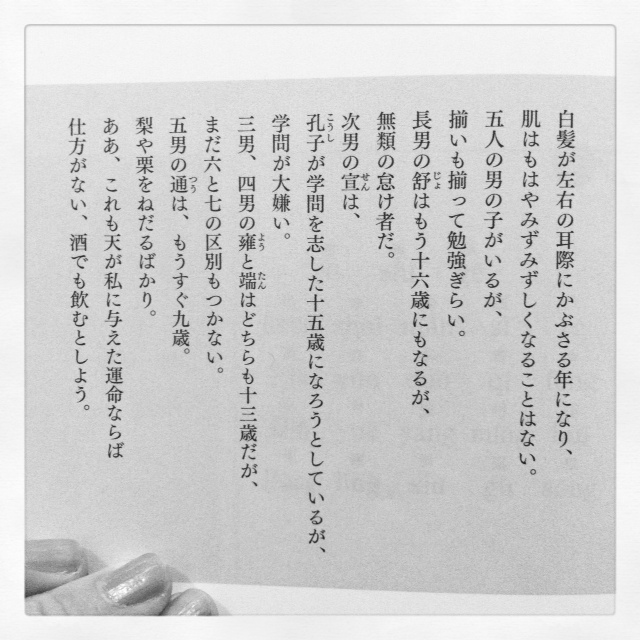 白髪が左右の耳際にかぶさる年になり、
肌はもはやみずみずしくなることはない。
五人の男の子がいるが、
揃いも揃って勉強ぎらい。
長男の舒はもう十六歳にもなるが、
無類の怠け者だ。
次男の宣は、
孔子が学問を志した十五歳になろうとしているが、
学問が大嫌い。
三男、四男の雍と端はどちらも十三歳だが、
まだ六と七の区別もつかない。
五男の通は、もうすぐ九歳。
梨や栗をねだるばかり。
ああ、これも天が私に与えた運命ならば
仕方がない、酒でも飲むとしよう。